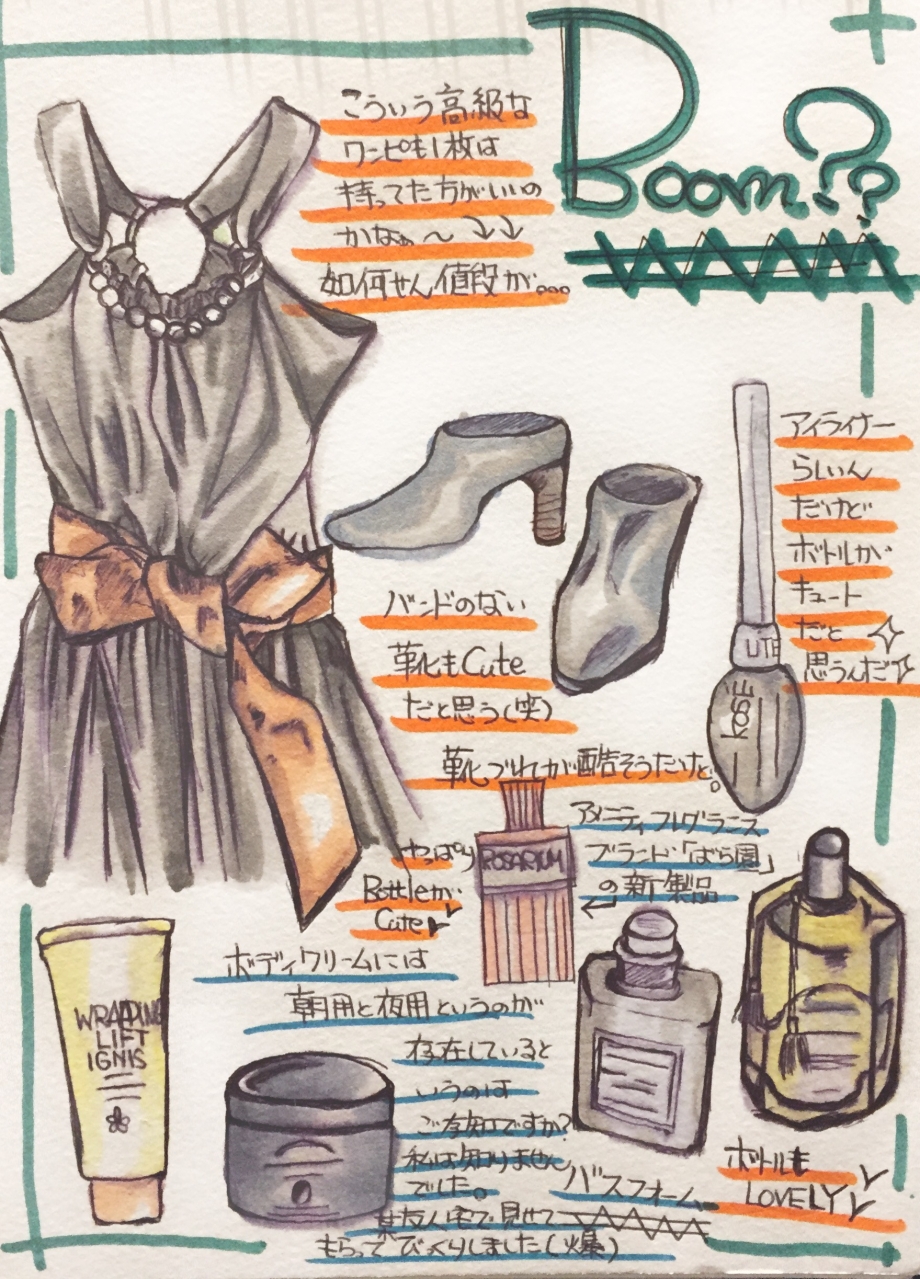 Boom??
こういう高級な
ワンピも1枚は
持ってた方がいいの
かなぁ〜↓↓
如何せん値段が。。。
アイライナー
らしいん
だけど
ボトルが
キュート
だと
思うんだ
UTE
KOSE
バンドのない
靴もCute
だと思う(笑)
靴づれが酷そうだけど。
アメニティフレグランス
ブランド「ばら園」
の新製品
ROSARIUM
やっぱり
Bottleが
Cute
ボディクリームには
朝用と夜用というのが
存在していると
いうのは
ご存知ですか?
私は知りません
でした。
某友人宅で見せて
もらってびっくりしました(爆)
WRAPPING
LIFT
IGNIS
バスフォーム
ボトルも
LOVELY